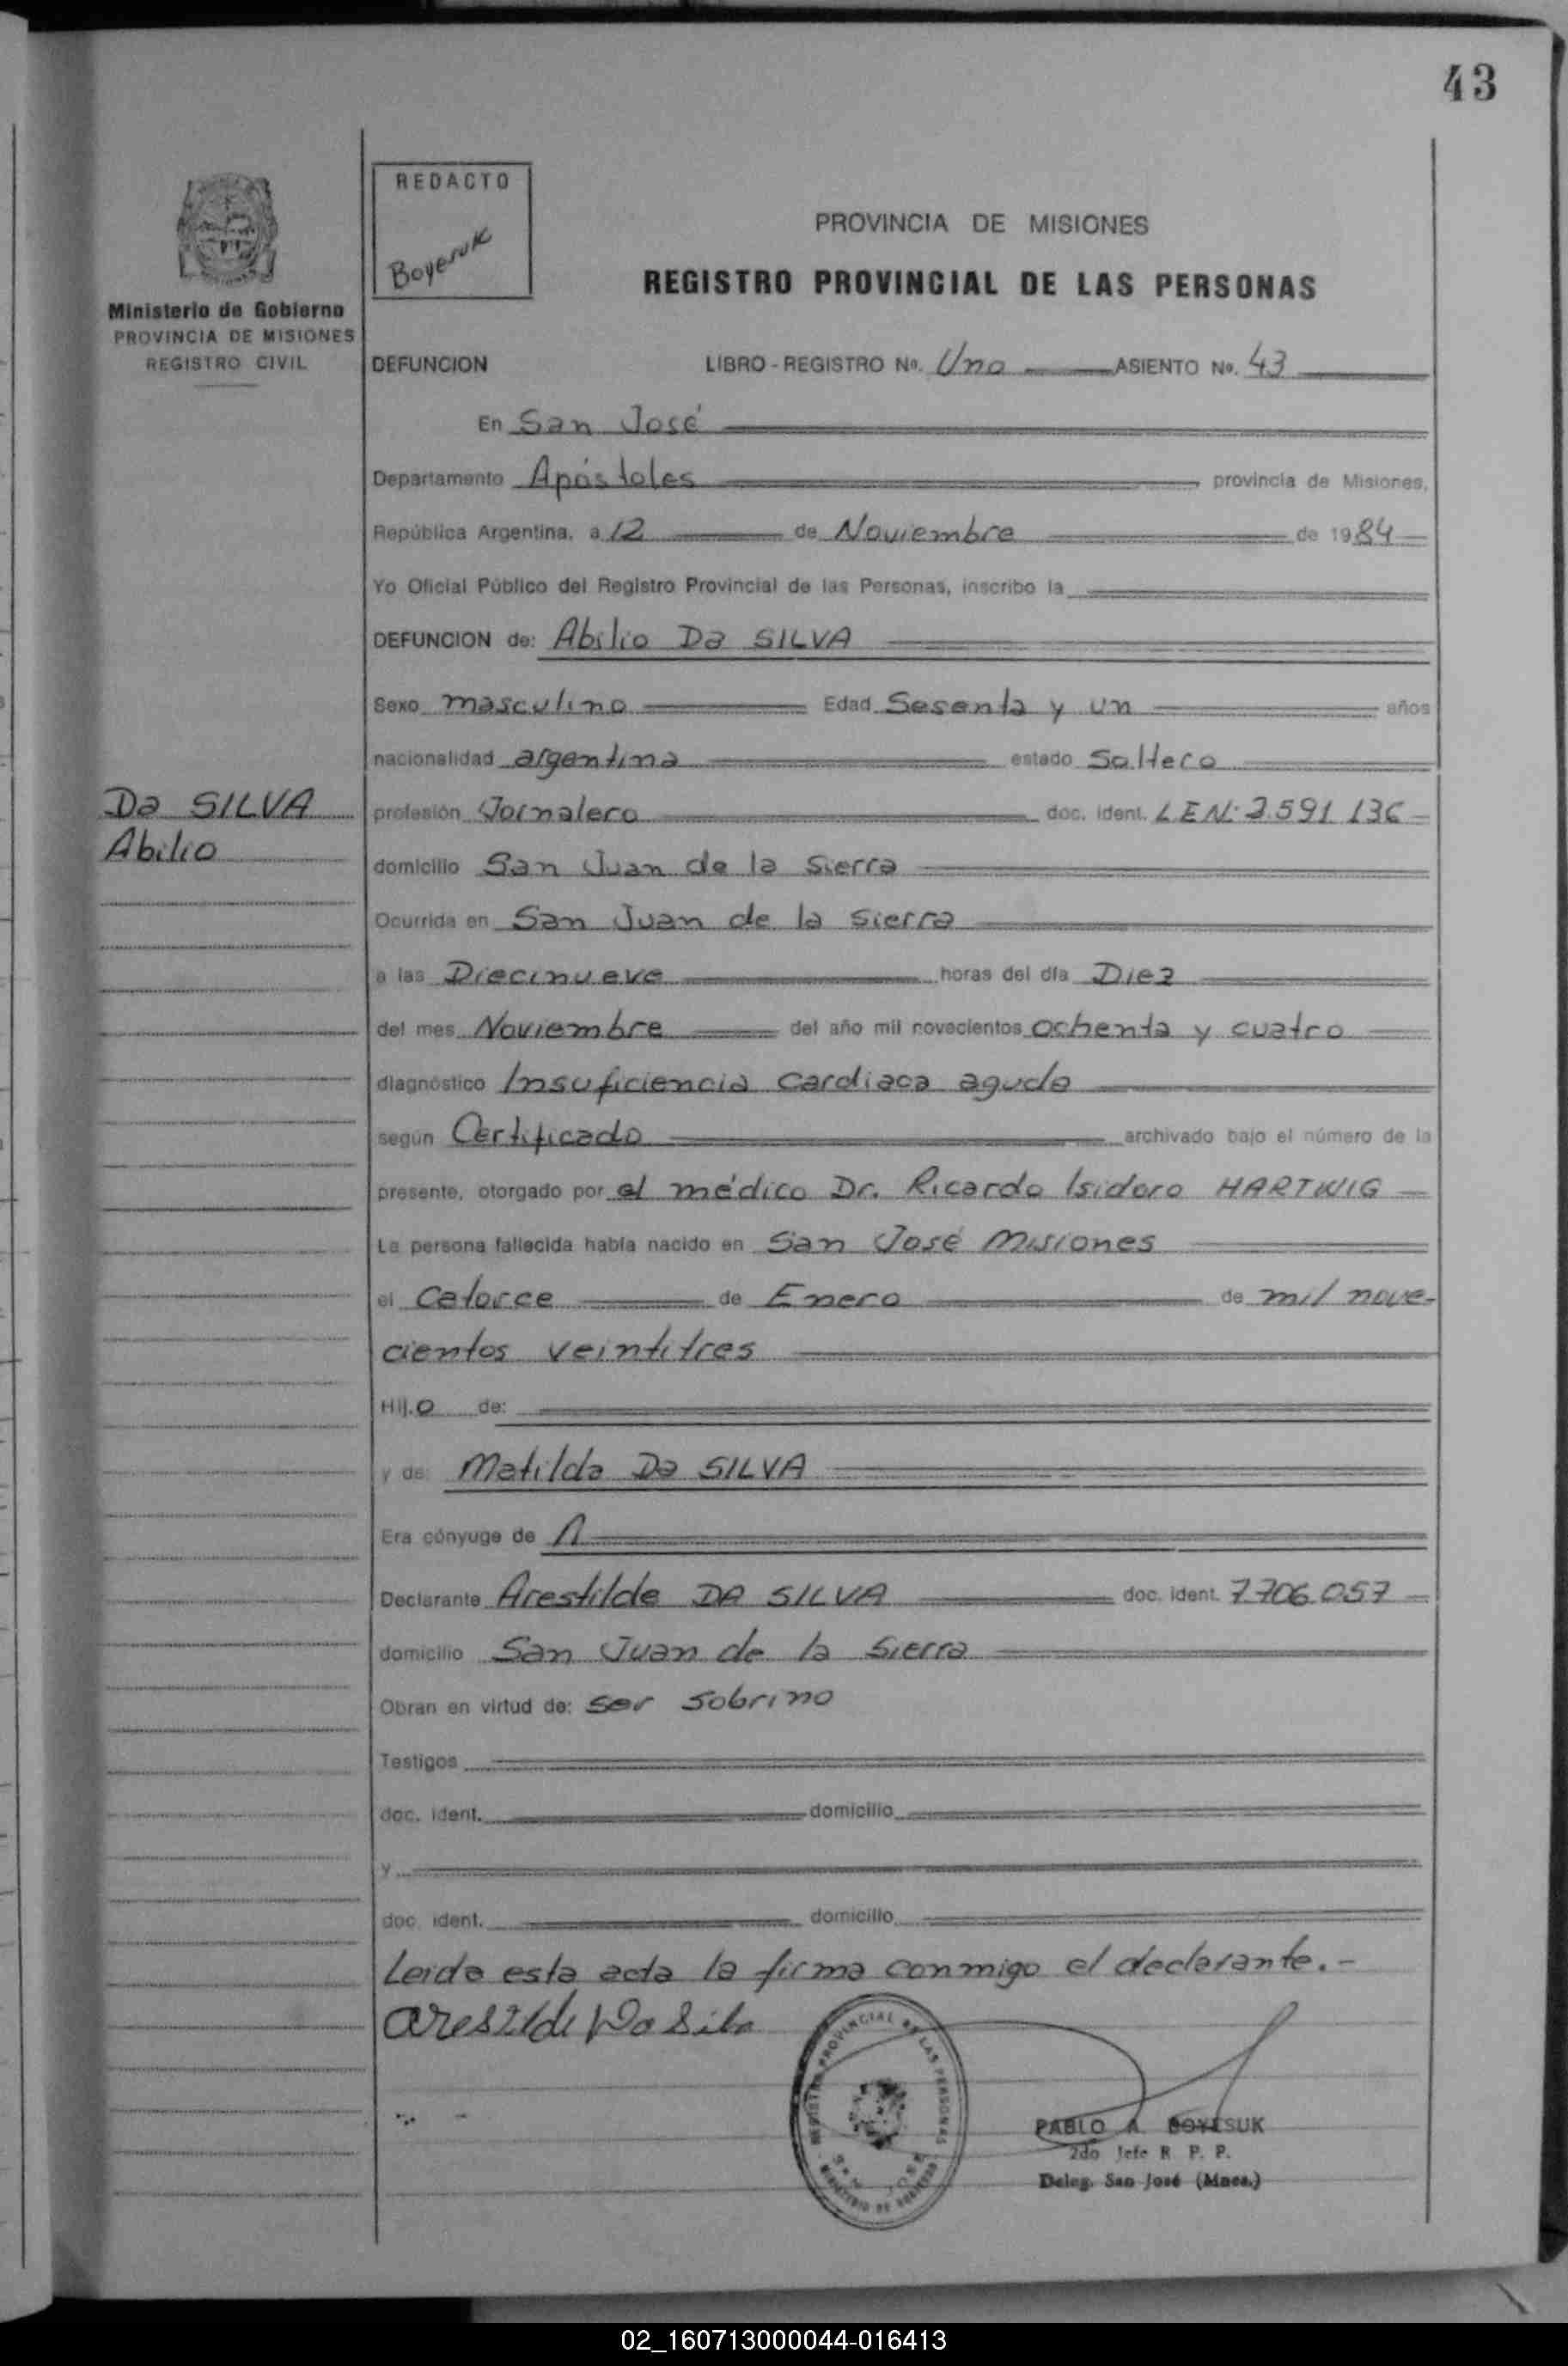 43
REDACTO
Boyesuk
PROVINCIA DE MISIONES
REGISTRO PROVINCIAL DE LAS PERSONAS
Ministerio de Gobierno
PROVINCIA DE MISIONES
REGISTRO CIVIL
DEFUNCION LIBRO - REGISTRO No. Uno ASIENTO No. 43
En San José
Departamento Apóstoles provincia de Misiones,
República Argentina, a 12 de Noviembre de 1984
Yo Oficial Público del Registro Provincial de las Personas, inscribo la
DEFUNCION de: Abilio Da SILVA
Sexo masculino Edad Sesenta y un años
nacionalidad argentina estado Soltero
Da SILVA
Abilio
profesión Jornalero doc. ident. L.E.N: 3.591.136
domicilio San Juan de la Sierra
Ocurrida en San Juan de la Sierra
a las Diecinueve horas del día Diez
del mes Noviembre del año mil novecientos ochenta y cuatro
diagnóstico Insuficiencia Cardiaca aguda
según Certificado archivado bajo el número de la
presente, otorgado por el médico Dr. Ricardo Isidoro HARTWIG
La persona fallecida había nacido en San José Misiones
el Catorce de Enero de mil nove-
cientos veintitres
Hij.o de:
y de: Matilda Da SILVA
Era cónyuge de
Declarante Arestilde DA SILVA doc. ident. 7.706.057
domicilio San Juan de la Sierra
Obran en virtud de: ser sobrino
Testigos
doc. ident. domicilio
y
doc. ident. domicilio
Leida esta acta la firma conmigo el declarante.-
Arestilde Da Silva
REGISTRO PROVINCIAL DE LAS PERSONAS
SAN JOSE
MINISTERIO DE GOBIERNO
PABLO A. BOYESUK
2do Jefe R. P. P.
Deleg. San José (Mnes.)
02_160713000044-016413